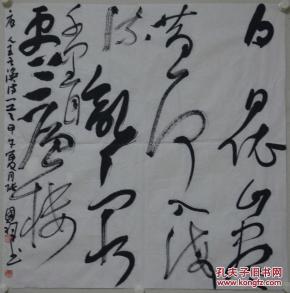 白日依山尽
黄河入海
流欲穷
千里目更上一层楼
唐人王之涣诗一首甲午夏月